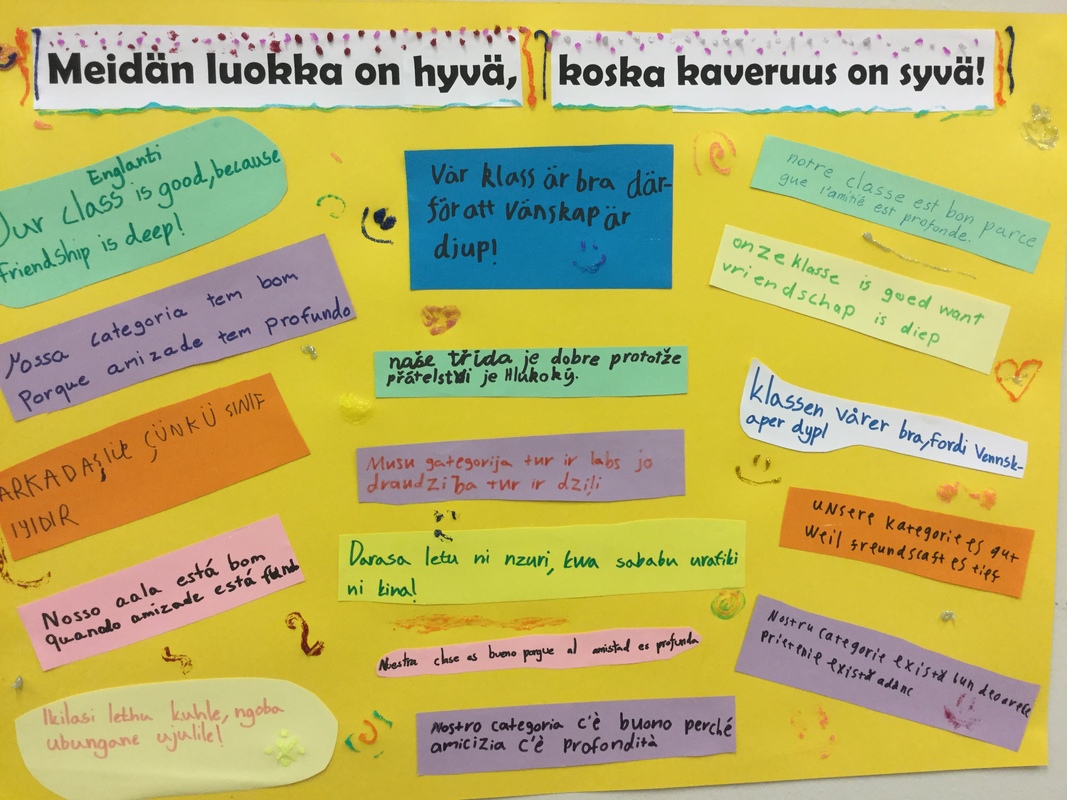 Meidän luokka on hyvä, koska kaveruus on syvä!
Englanti
Our class is good, because
friendship is deep!
Nossa categoria tem bom
Porque amizade tem profundo
ARKADAŞLIK ÇÜNKÜ SINIF
IYIDIR
Nosso aala está bom
quando amizade está
Ikilasi lethu kuhle, ngoba
ubungane ujulile!
Vår klass är bra där-
för att vänskap är
djup!
naše třída je dobre prototže
přátelství je Hlukoký.
Musu gategorija tur ir labs jo
draudzība tur ir dziļi
Darasa letu ni nzuri, kwa sababu urafiki
ni kina!
Nuestra clase as bueno porque al amistad es profunda
Nostro categoria c'è buono perché
amicizia c'è profondità
notre classe est bon parce
que l'amitié est profonde.
onze klasse is goed want
vriendschap is diep
klassen vårer bra, fordi Vennsk-
aper dypl
unsere Kategorie es gut
Weil freundscaft es tief
Nostru Categorie există bun deoarece
Prietenie există adânc